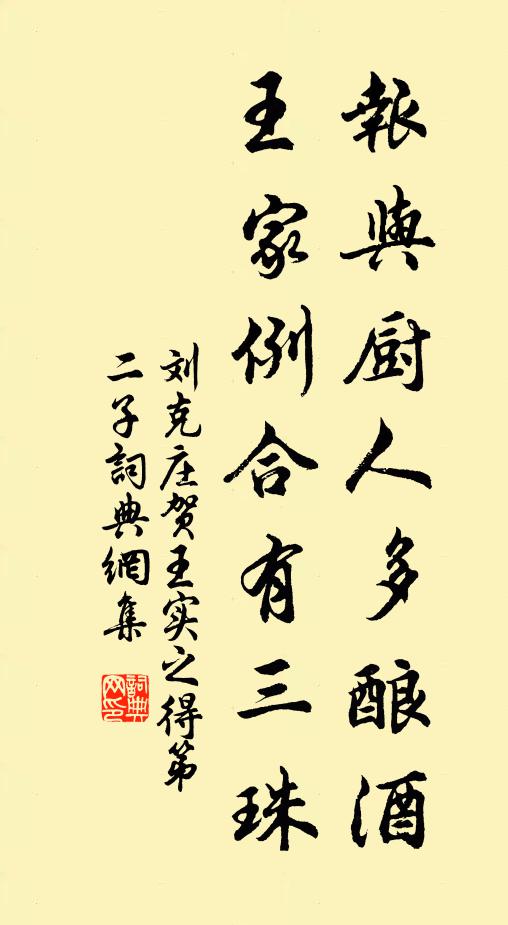 報與厨人多酿酒
王家例合有三珠
刘克庄贺王实之得第
二子詞典網集
詞典网印